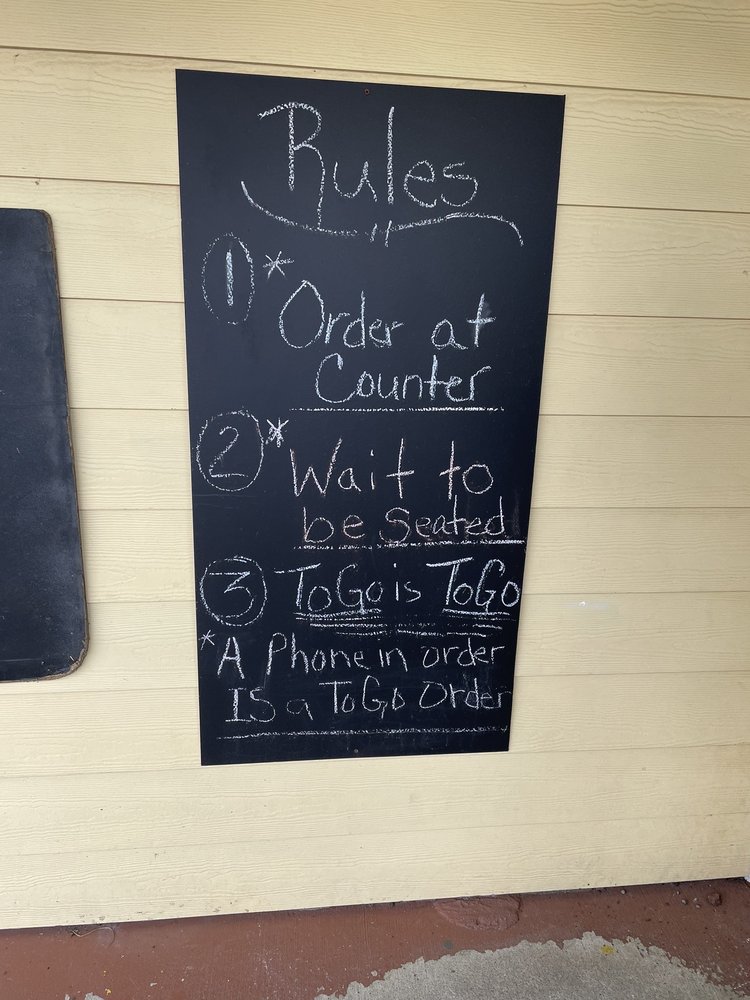 Rules
1 * Order at
Counter
2 * Wait to
be Seated
3 ToGo is ToGo
* A Phone in order
IS a ToGo Order